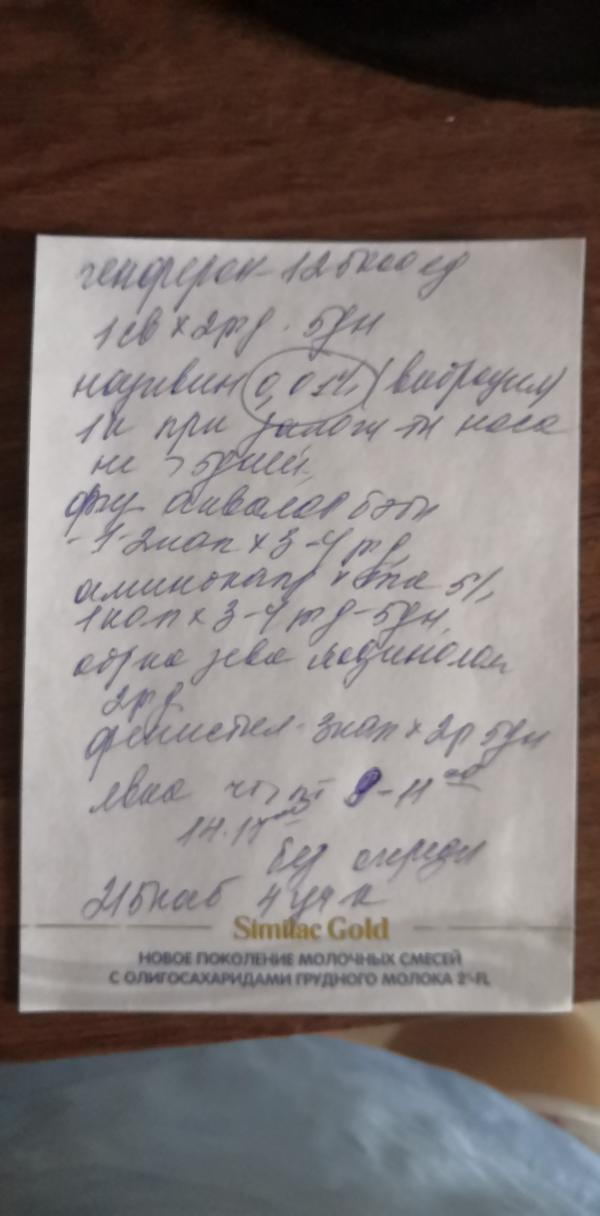 генферон - 125000 ед
1 св х 2 р д. 5 дн
називин 0,01% (виброцил)
1 к при залож ти носа
не > 5 дней,
аквалор бэби
- 1-2 кап х 3-4 р д,
аминокапр 5%,
1 кап х 3-4 р д - 5 дн,
зева
2 р д
фенистил - 3 кап х 2 р 5 дн
явка чт, пт 9 - 11 00
14.
без очереди
215 каб 4 уч к
Similac Gold
НОВОЕ ПОКОЛЕНИЕ МОЛОЧНЫХ СМЕСЕЙ
С ОЛИГОСАХАРИДАМИ ГРУДНОГО МОЛОКА 2'-FL